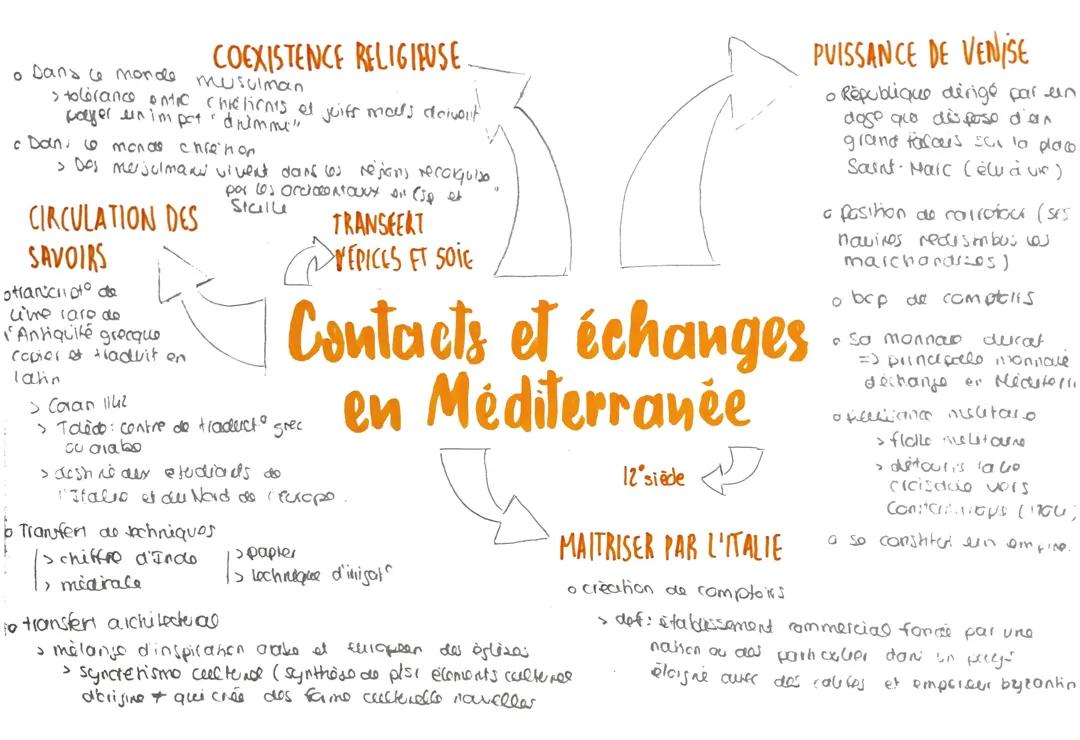 COEXISTENCE RELIGIEUSE
o Dans le monde musulman
> tolérance entre chrétiens et juifs mais doivent
payer un impot "dhimmi"
o Dans le monde chrétien
> Des musulmans vivent dans les régions reconquise
par les occidentaux en Esp et
Sicile
CIRCULATION DES
SAVOIRS
o transcript° de
livre rare de
l'Antiquité grecque
copier et traduit en
latin
> Coran 1142
> Tolède: centre de traduct° grec
ou arabe
> destiné aux etudiants de
l'Italie et du Nord de l'Europe.
o Transfert de techniques
> chiffre d'Inde
> médicale
> papier
> technique d'irrigat°
o transfert architectural
> mélange d'inspiration arabe et européen des églises
> syncrétisme culturel (synthèse de plsr éléments culturel
d'origine ≠ qui crée des forme culturelle nouvelles
TRANSFERT
D'ÉPICES ET SOIE
Contacts et échanges
en Méditerranée
12° siècle
MAITRISER PAR L'ITALIE
o création de comptoirs
> def: établissement commercial fondé par une
nation ou des particulier dans un pays
éloigné avec des et empereur byzantin
PUISSANCE DE VENISE
o République dirigé par un
doge que dispose d'un
grand Palais sur la place
Saint-Marc (élu à vie)
o position de carrefour (ses
navires les
marchandises)
o bcp de comptoirs
o Sa monnaie ducat
=> principale monnaie
d'échange en Méditerr
o militaire
> flotte militaire
> détourn la
croisade vers
o se constitut un empire.